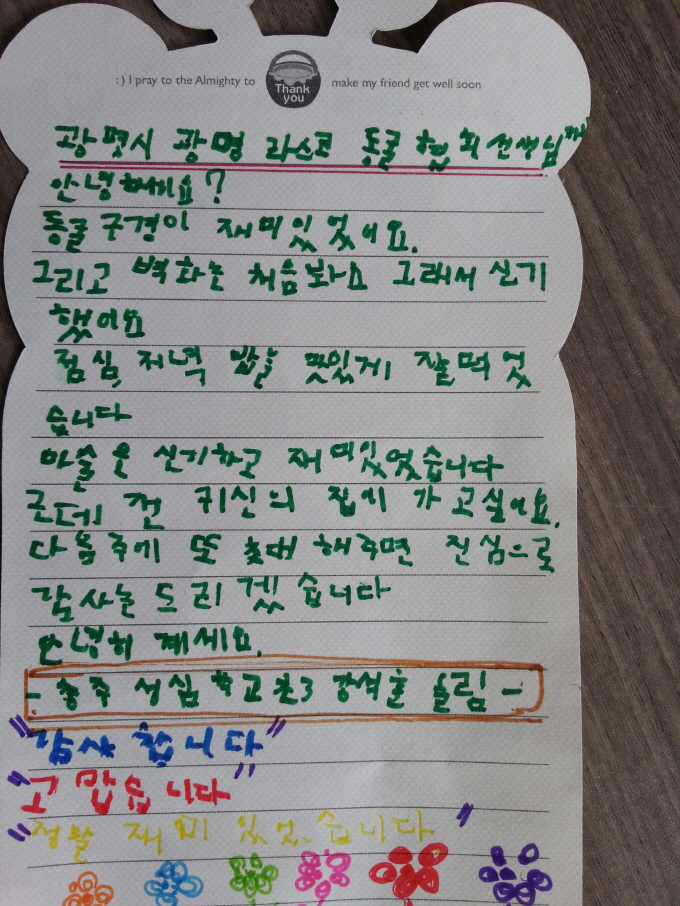 :) I pray to the Almighty to Thank you make my friend get well soon
광명시 광명 라스코 동굴 협회 선생님께
안녕하세요?
동굴 구경이 재미있었어요.
그리고 벽화는 처음봐요 그래서 신기
했어요
점심, 저녁 밥을 맛있게 잘먹었
습니다
마술은 신기하고 재미있었습니다
근데 전 귀신의 집에 가고싶어요.
다음주에 또 초대 해주면 진심으로
감사는 드리겠습니다
안녕히 계세요.
- 충주 성심 학교 초3 강석훈 올림 -
"감사합니다"
"고맙습니다"
"정말 재미있었습니다"